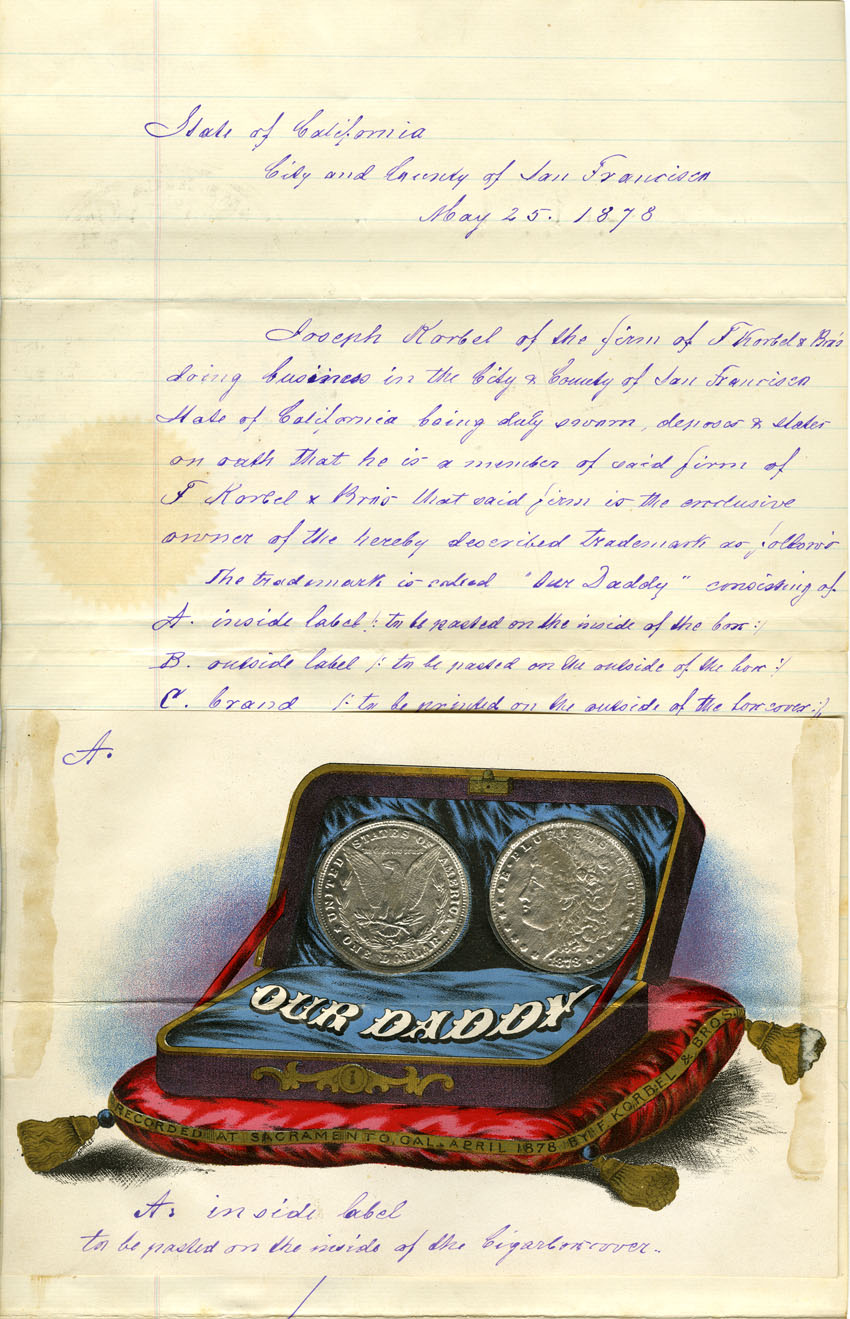 State of California
City and County of San Francisco
May 25. 1878
Joseph Korbel of the firm of F Korbel & Bro's
doing business in the City & County of San Francisco
State of California being duly sworn, deposes & states
on oath that he is a member of said firm of
F Korbel & Bro's that said firm is the exclusive
owner of the hereby described trademark as follows
The trademark is called "Our Daddy" consisting of
A. inside label /: to be pasted on the inside of the box :/
B. outside label /: to be pasted on the outside of the box :/
C. brand /: to be printed on the outside of the boxcover :/
A.
UNITED STATES OF AMERICA
ONE DOLLAR
E·PLURIBUS·UNUM
1878
OUR DADDY
RECORDED AT SACRAMENTO, CAL. APRIL 1878 BY F. KORBEL & BROS.
A: inside label
to be pasted on the inside of the Cigarboxcover..